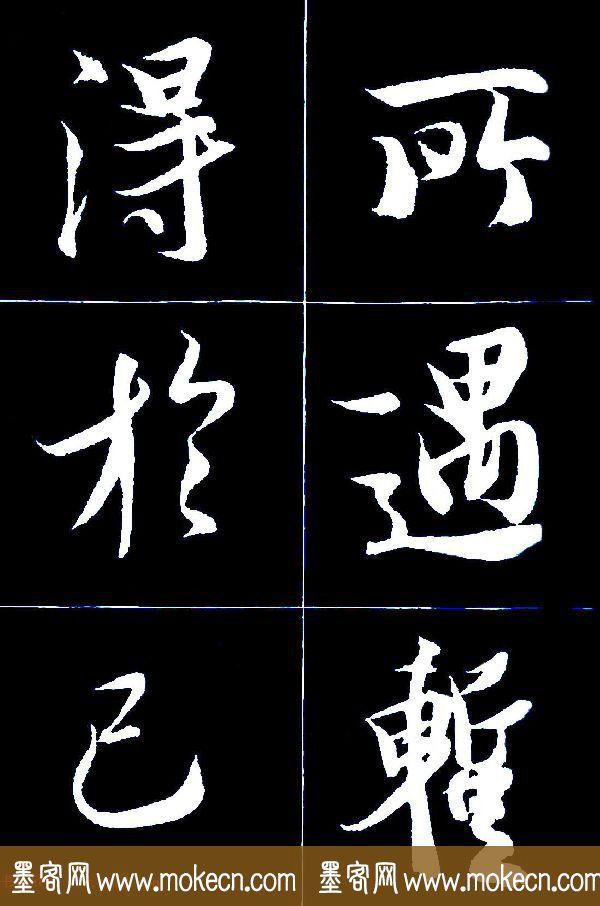 所遇暫
得於己
墨客网 www.mokecn.com 墨客网 www.mokecn.com